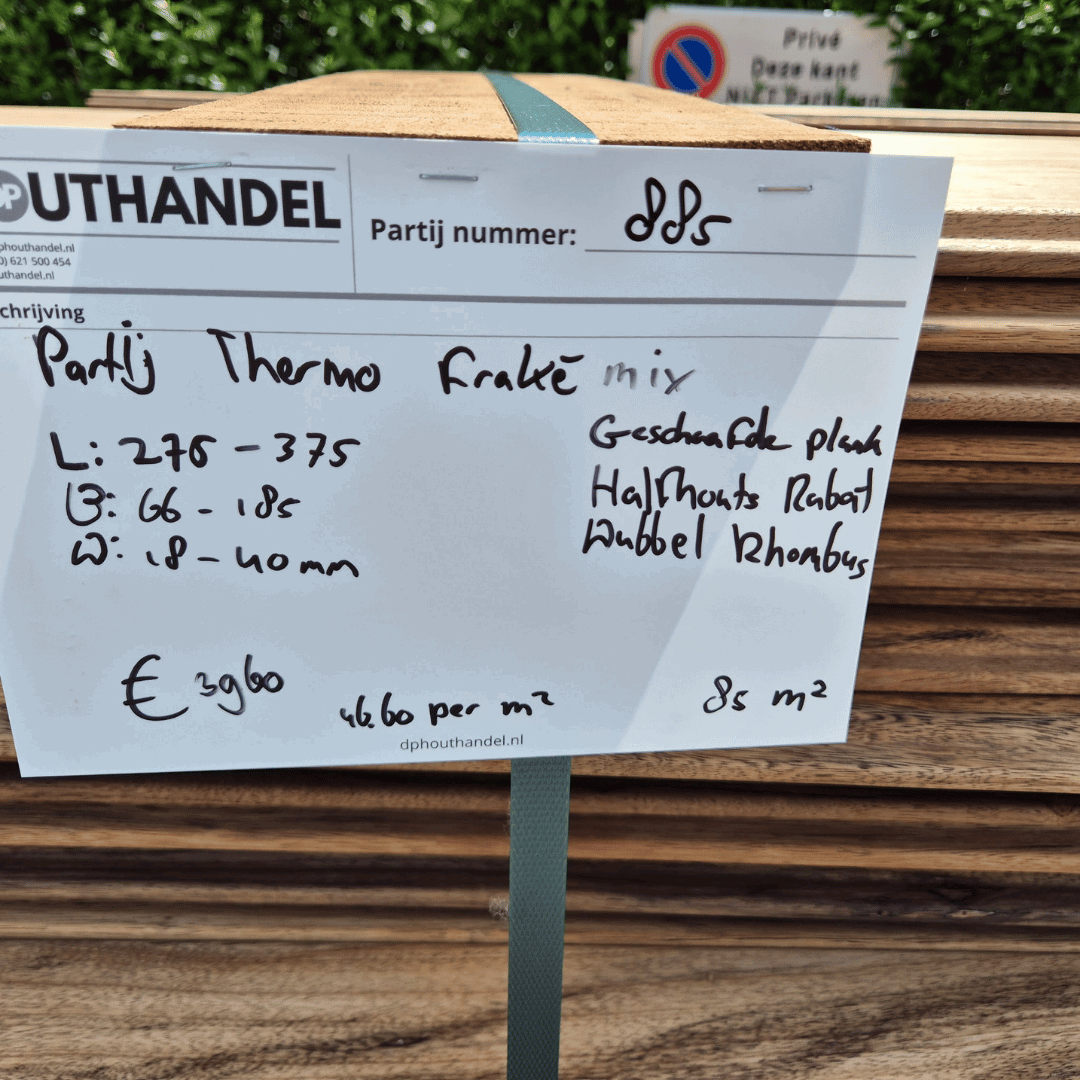 Privé
Deze kant
NIET Parkeren
DP
OUTHANDEL
phouthandel.nl
0) 621 500 454
uthandel.nl
Partij nummer: 885
chrijving
Partij Thermo Frakē mix
L: 275 - 375
B: 66 - 185
D: 18 - 40 mm
Geschaafde plank
Halfhouts Rabat
Dubbel Rhombus
€ 3960
46.60 per m²
85 m²
dphouthandel.nl